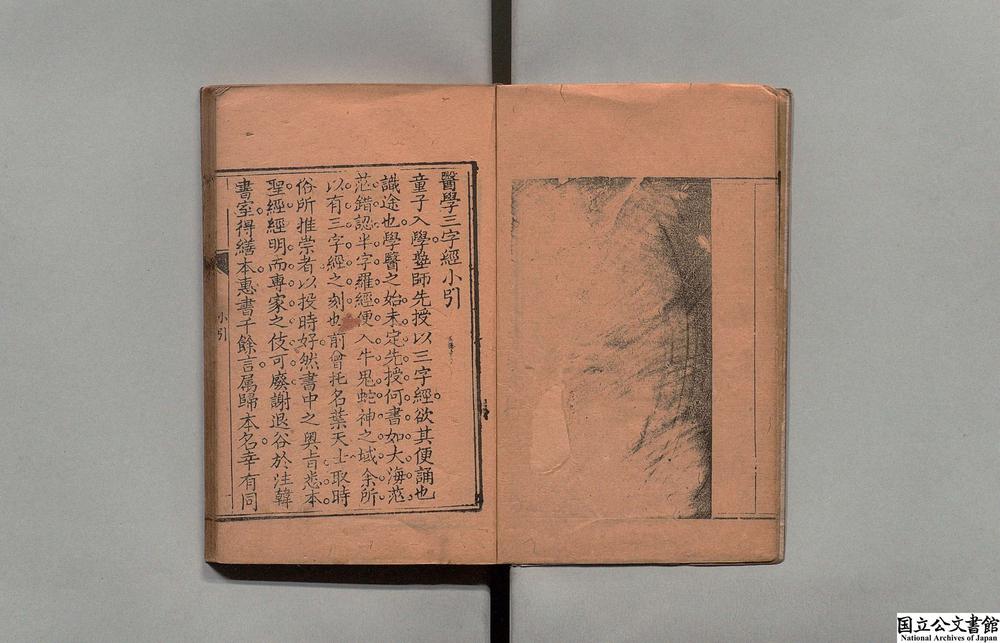 醫學三字經小引
童子入學塾師先授以三字經欲其便誦也
識途也學醫之始未定先授何書如大海茫
茫錯認半字羅經便入牛鬼蛇神之域余所
以有三字經之刻也前曾托名葉天士取時
俗所推崇者以投時好然書中之奥旨悉本
聖經經明而專家之伎可廢謝退谷於注韓
書室得繕本惠書千餘言属歸本名幸有同
小引
国立公文書館
National Archives of Japan